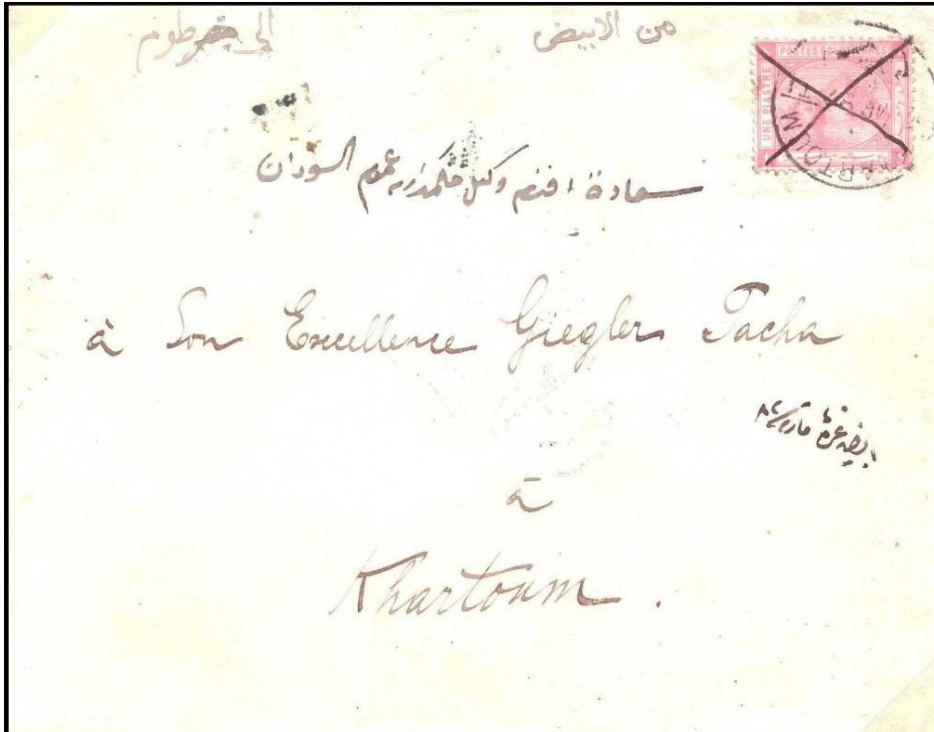 من الابيض
الى خرطوم
POSTES
UNE PIASTRE
KARTOUM
سعادة افندم وكيل حكمدارية عموم السودان
à Son Excellence Giegler Pacha
à
Khartoum.